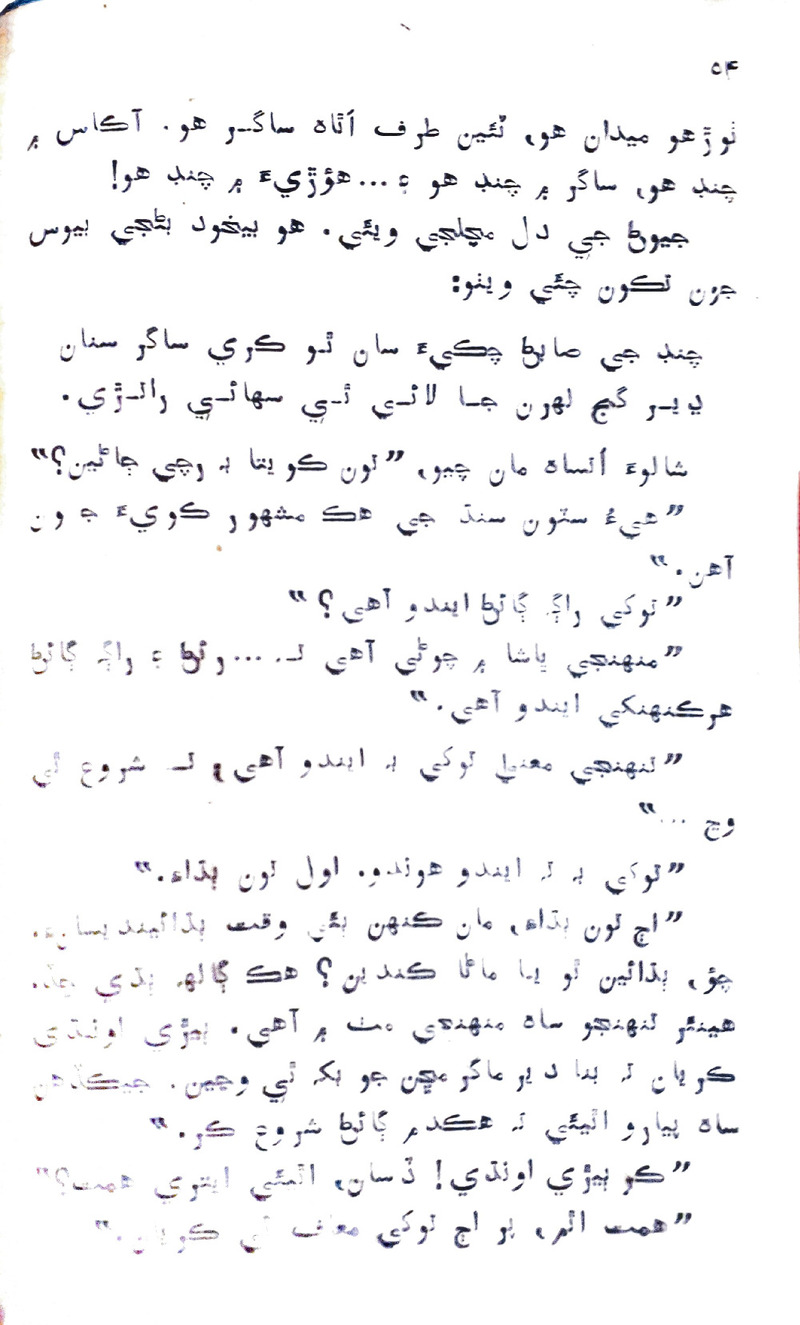 ۵۴
نوڙهو ميدان هو، ٽئين طرف اَٿاهه ساگر هو. آڪاس ۾
چنڊ هو، ساگر ۾ چنڊ هو ۽...هوڙيءَ ۾ چنڊ هو!
جيوڻ جي دل مچلجي ويئي. هو بيخود بڻجي بيوس
جون تڪون چئي ويٺو:
چنڊ جي صابڻ چڪيءَ سان ٿو ڪري ساگر سنان
ڍير گجـ لهرن جا لائي ٿي سهائي رانڙي.
شالوءَ اُتساهه مان چيو، ”تون ڪويتا بہ رچي ڄاڻين؟“
”هيءُ سٽون سنڌ جي هڪ مشهور ڪويءَ جون
آهن.“
”توکي راڳ ڳائڻ ايندو آهي؟“
”منهنجي ڀاشا ۾ چوڻي آهي تہ ...رئڻ ۽ راڳ ڳائڻ
هرڪنهنکي ايندو آهي.“
”تنهنجي معنيٰ توکي بہ ايندو آهي، تہ شروع ٿي
وڃ ...“
”توکي بہ تہ ايندو هوندو. اول تون ٻڌاءِ.“
”اڄ تون ٻڌاءِ، مان ڪنهن ٻئي وقت ٻڌائيندي سانءِ.
چؤ، ٻڌائين ٿو يا ماٺا ڪندين؟ هڪ ڳالهہ ٻڌي ڇڏ.
هينئر تنهنجو ساهه منهنجي مٺ ۾ آهي. ٻيڙي اونڌي
ڪريان تہ بنا دير ماگر مڇن جو بکہ ٿي وڃين. جيڪڏهن
ساهه پيارو اٿيئي تہ هڪدم ڳائڻ شروع ڪر.“
”ڪر ٻيڙي اونڌي! ڏسان، اٿيئي ايتري همت؟“
”همت اٿم، پر اڄ توکي معاف ٿي ڪريان.“